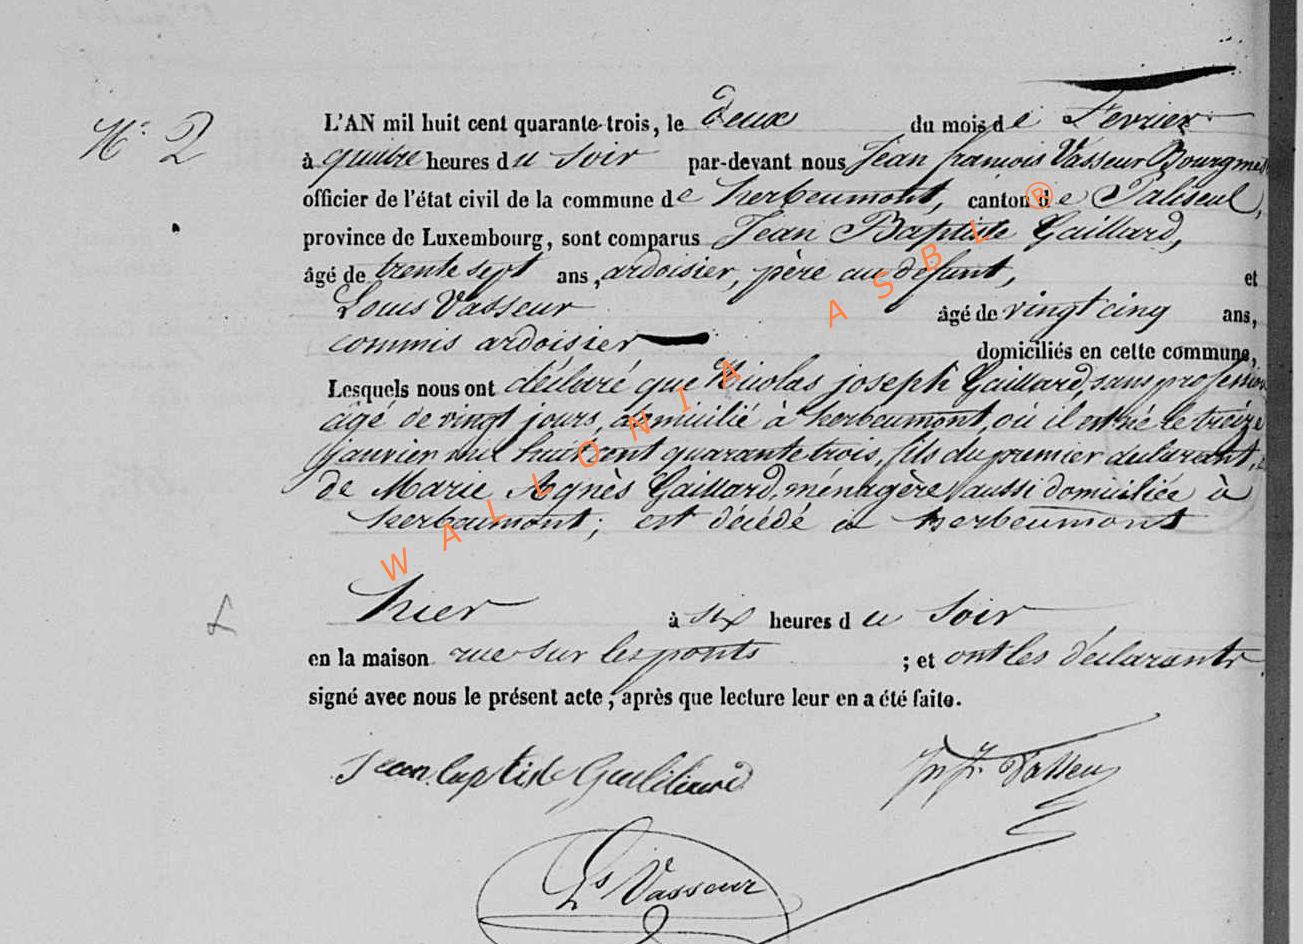 N° 2
L'AN mil huit cent quarante-trois, le deux du mois de Fevrier
à quatre heures du soir par-devant nous Jean françois Vasseur Bourgmes
officier de l'état civil de la commune de herbeumont, canton de Paliseul,
province de Luxembourg, sont comparus Jean Baptiste Gaillard,
âgé de trente sept ans, ardoisier, père au défunt, et
Louis Vasseur âgé de vingt cinq ans,
commis ardoisier domiciliés en cette commune,
Lesquels nous ont déclaré que Nicolas joseph Gaillard, sans profession
agé de vingt jours, domicilié à herbeumont, où il est né le treize
janvier mil huit cent quarante trois, fils du premier déclarant, e
de Marie Agnès Gaillard, ménagère, aussi domiciliée à
herbeumont; est décédé à herbeumont
hier à six heures du soir
en la maison rue sur les ponts ; et ont les déclarants
signé avec nous le présent acte, après que lecture leur en a été faite.
Jean baptiste Vasseur
Ls Vasseur
WALLONIA ASBL ®